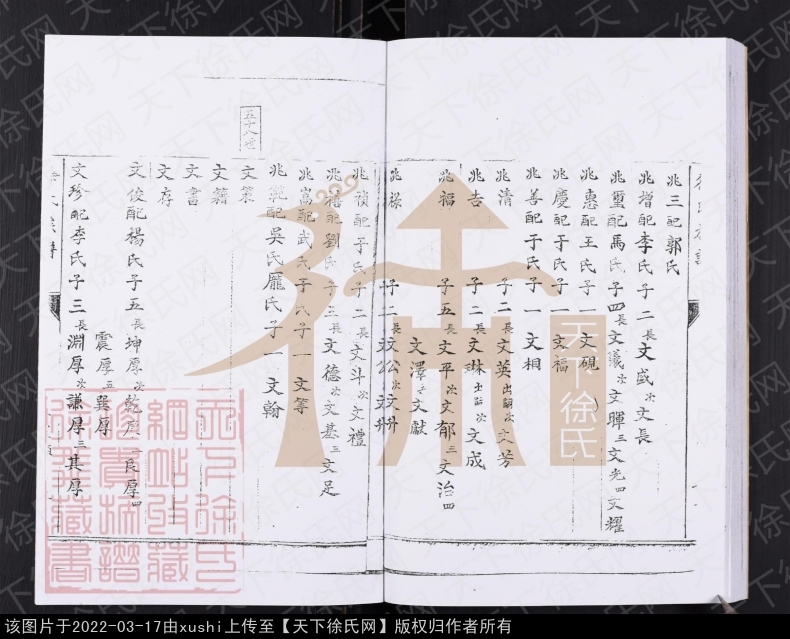 兆三配郭氏
兆增配李氏子二長文盛次文長
兆璽配馬氏子四長文議次文暉三文光四文耀
兆惠配王氏子一文硯
兆慶配于氏子一文福
兆善配于氏子一文相
兆清 子二長文英出嗣次文芳
兆吉 子二長文琳次文成
兆福 子五長文平次文郁三文治四
文澤五文獻
兆祿 子二長文公次文耕
兆禎配于氏子二長文斗次文禮
兆禧配劉氏子三長文德次文基三文足
兆嵩配武氏子一文等
兆乾配吳氏龐氏子一文翰
五十八世
文策
文籍
文書
文存
文俊配楊氏子五長坤厚次乾厚三艮厚四
震厚五巽厚
文珍配李氏子三長淵厚次謙厚三其厚
天下徐氏
天下徐氏網站收藏
天下徐氏网
该图片于2022-03-17由xushi上传至【天下徐氏网】版权归作者所有